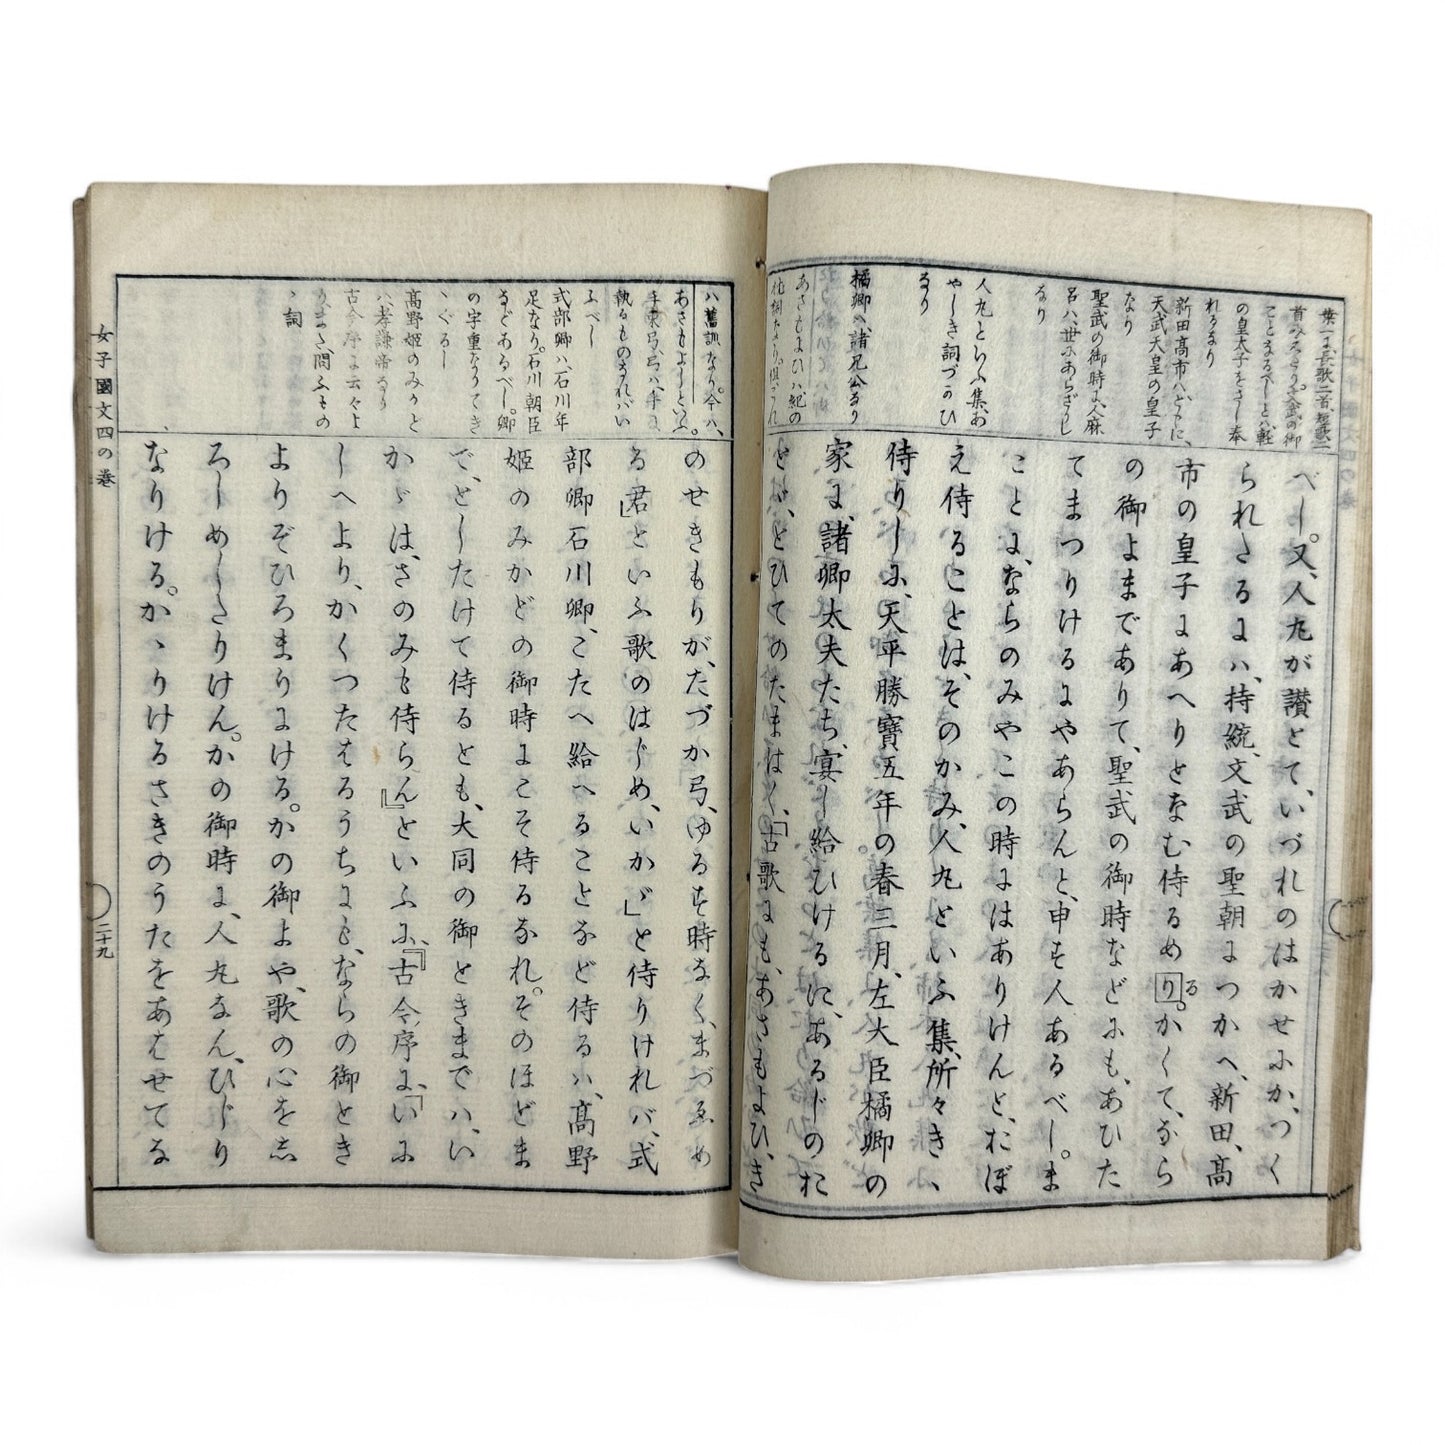 葉一に、長歌二首、短歌二
首みえたり。文武の御
こととなるべしとハ、軽
の皇太子をさし奉
れるなり
新田高市ハ、ともに、
天武天皇の皇子
なり
聖武の御時に、人麻
呂ハ、世にあらざりし
なり
人丸といふ集、あ
やしき詞づかひ
なり
橘卿ハ、諸兄公なり
あさもよひハ、紀の
べし。又、人丸が讃とて、いづれのはかせにか、つく
られたるにハ、持統、文武の聖朝につかへ、新田、髙
市の皇子にあへりとなむ侍るめり。る かくて、なら
の御よまでありて、聖武の御時などにも、あひた
てまつりけるにやあらんと、申す人あるべし。ま
ことに、ならのみやこの時にはありけんと、おぼ
え侍ることは、そのかみ、人丸といふ集、所々き、
侍りしに、天平勝寶五年の春三月、左大臣橘卿の
家に、諸卿太夫たち、宴し給ひけるに、あるじのお
とゞ、とひてのたまはく、「古歌にも、あさもよひ、き
ハ舊訓なり。今ハ、
あさもよしといふ。
手束弓、弓ハ、手に
執るものなれバ、い
ふべし
式部卿ハ、石川年
足なり。石川朝臣
などあるべし。卿
の字重なりてき
ゝぐるし
髙野姫のみかど
ハ、孝謙帝なり
古今序に云々よ
りまた、問ふもの
ゝ詞
のせきもりが、たづか弓、ゆるす時なく、まづゑめ
る君」といふ歌のはじめ、いかゞ」と侍りけれバ、式
部卿石川卿、こたへ給へることなど侍るハ、髙野
姫のみかどの御時にこそ侍るなれ。そのほどま
で、としたけて侍るとも、大同の御ときまでハ、い
かゞは、さのみも侍らん』といふに、『古今序に、「いに
しへより、かくつたはるうちにも、ならの御とき
よりぞひろまりにける。かの御よや、歌の心をし
ろしめしたりけん。かの御時に、人丸なん、ひじり
なりける。かゝりけるさきのうたをあはせてな
女子國文四の巻
二十九